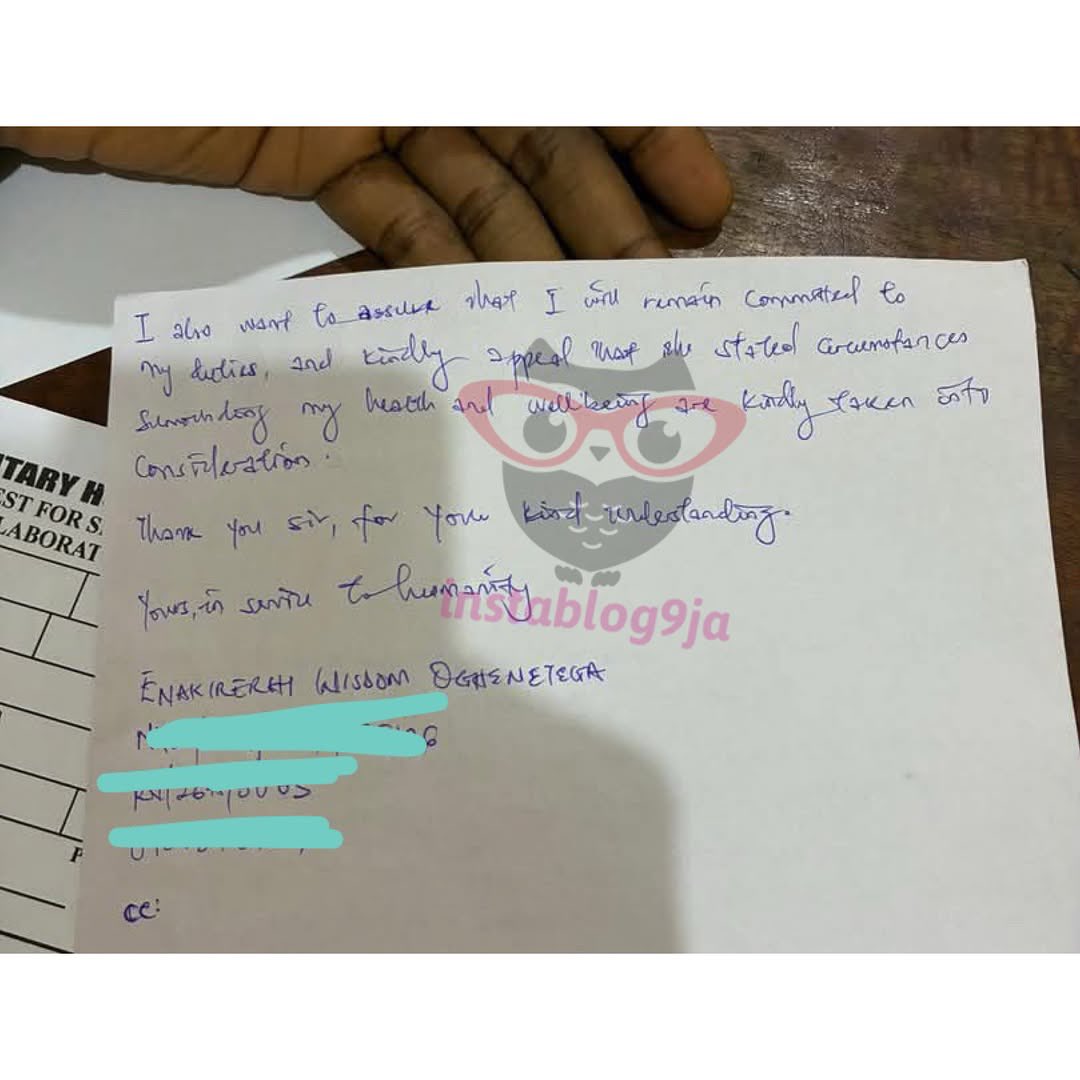 I also want to assure that I will remain committed to
my duties, and kindly appeal that the stated circumstances
surrounding my health and wellbeing are kindly taken into
consideration.
Thank you sir, for your kind understanding.
Yours, in service to humanity
ENAKIRERHI WISDOM OGHENETEGA
CC:
instablog9ja
TARY H
EST FOR S
LABORAT
P